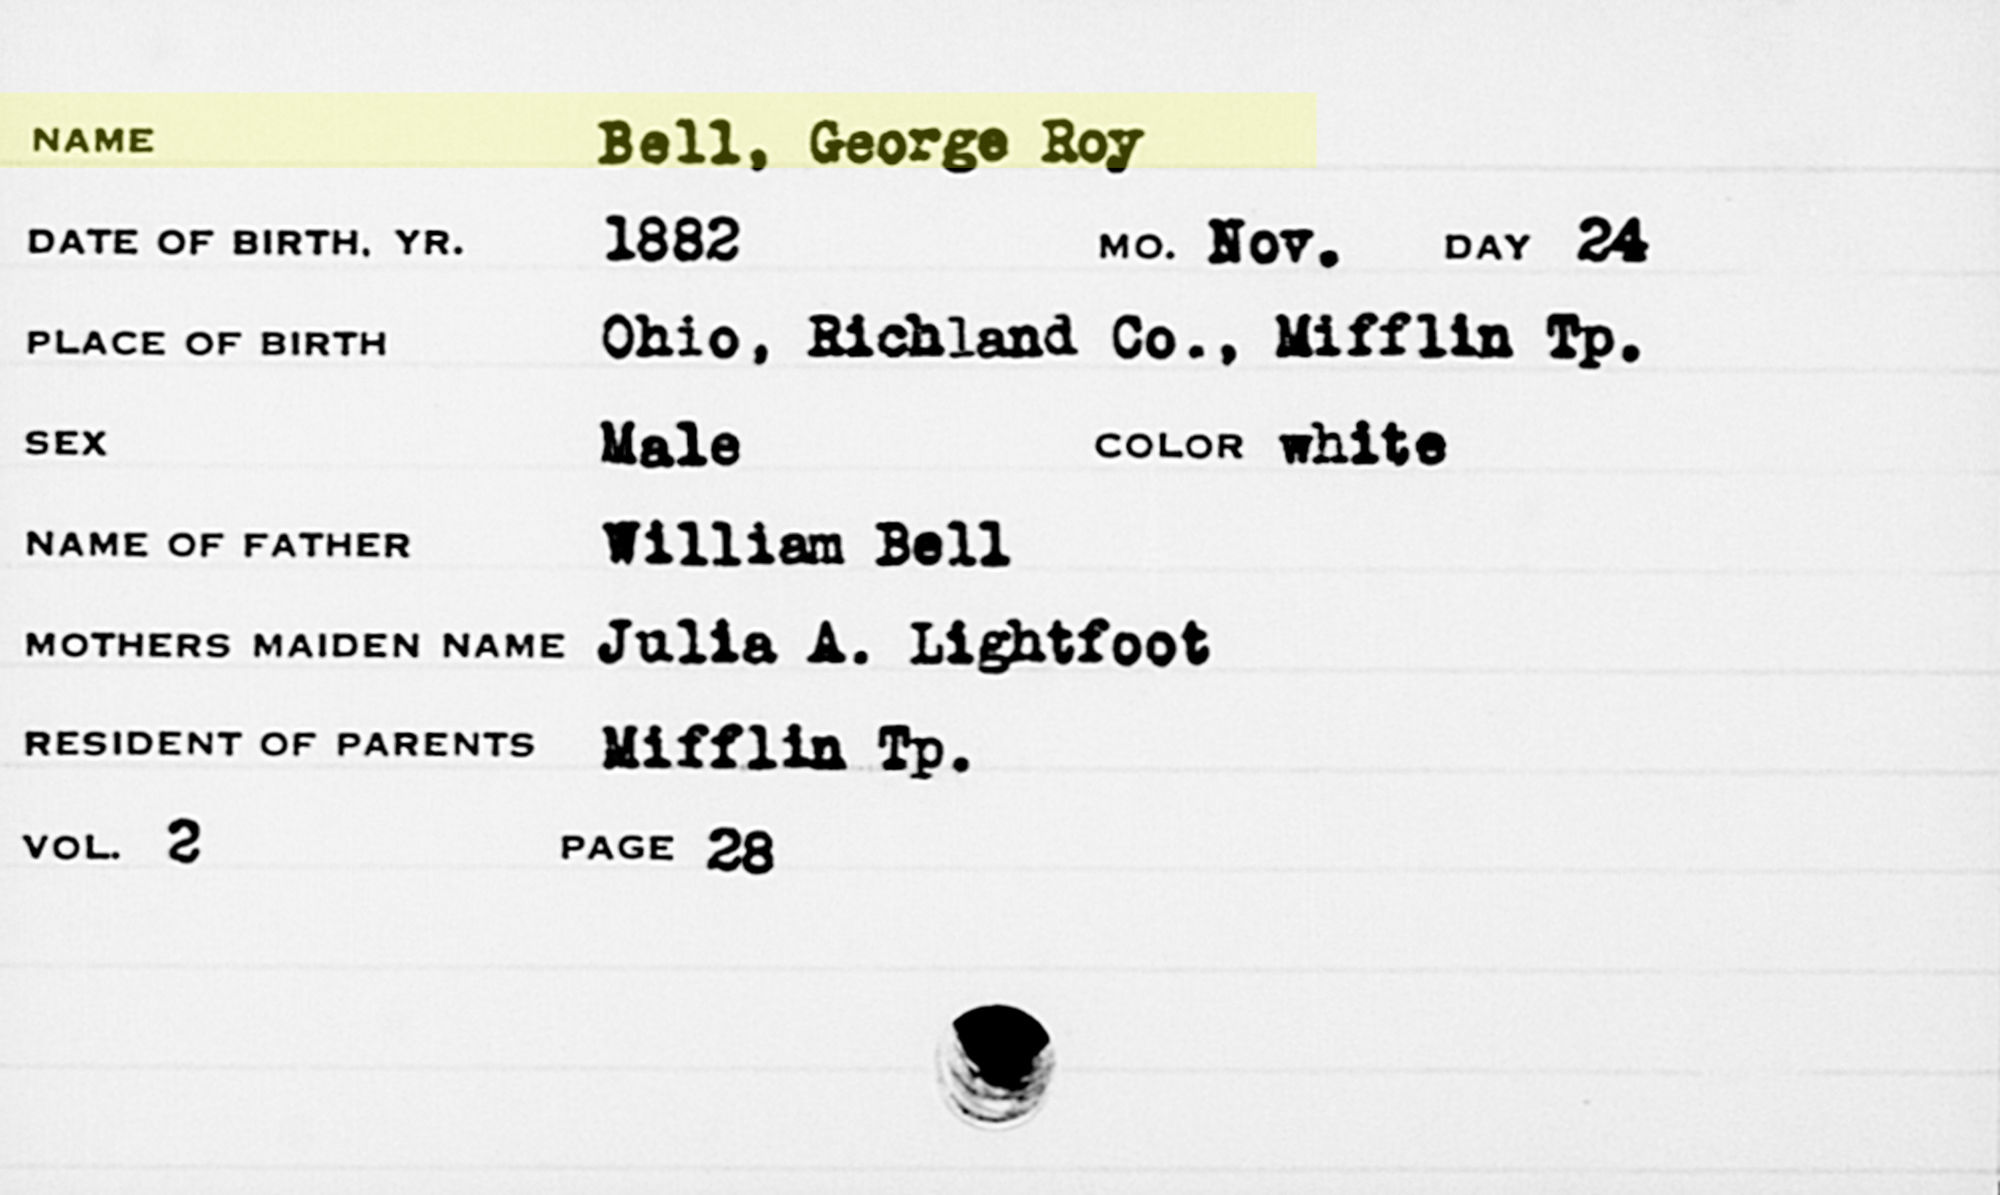 NAME Bell, George Roy
DATE OF BIRTH, YR. 1882 MO. Nov. DAY 24
PLACE OF BIRTH Ohio, Richland Co., Mifflin Tp.
SEX Male COLOR white
NAME OF FATHER William Bell
MOTHERS MAIDEN NAME Julia A. Lightfoot
RESIDENT OF PARENTS Mifflin Tp.
VOL. 2 PAGE 28